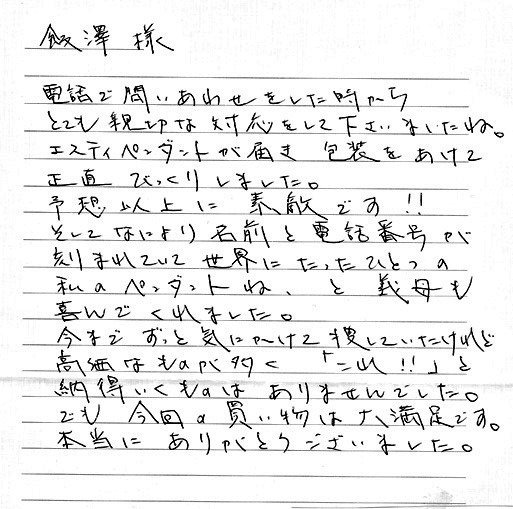 飯澤 様
電話で問いあわせをした時から
とても親切な対応をして下さいましたね。
エスティペンダントが届き 包装をあけて
正直 びっくりしました。
予想以上に 素敵です!!
そしてなにより 名前と電話番号が
刻まれていて 世界にたったひとつの
私のペンダントね、と 義母も
喜んでくれました。
今まで ずっと気にかけて捜していたけれど
高価なものが多く 「これ!!」と
納得いくものは ありませんでした。
でも 今回の買い物は 大満足です。
本当に ありがとうございました。